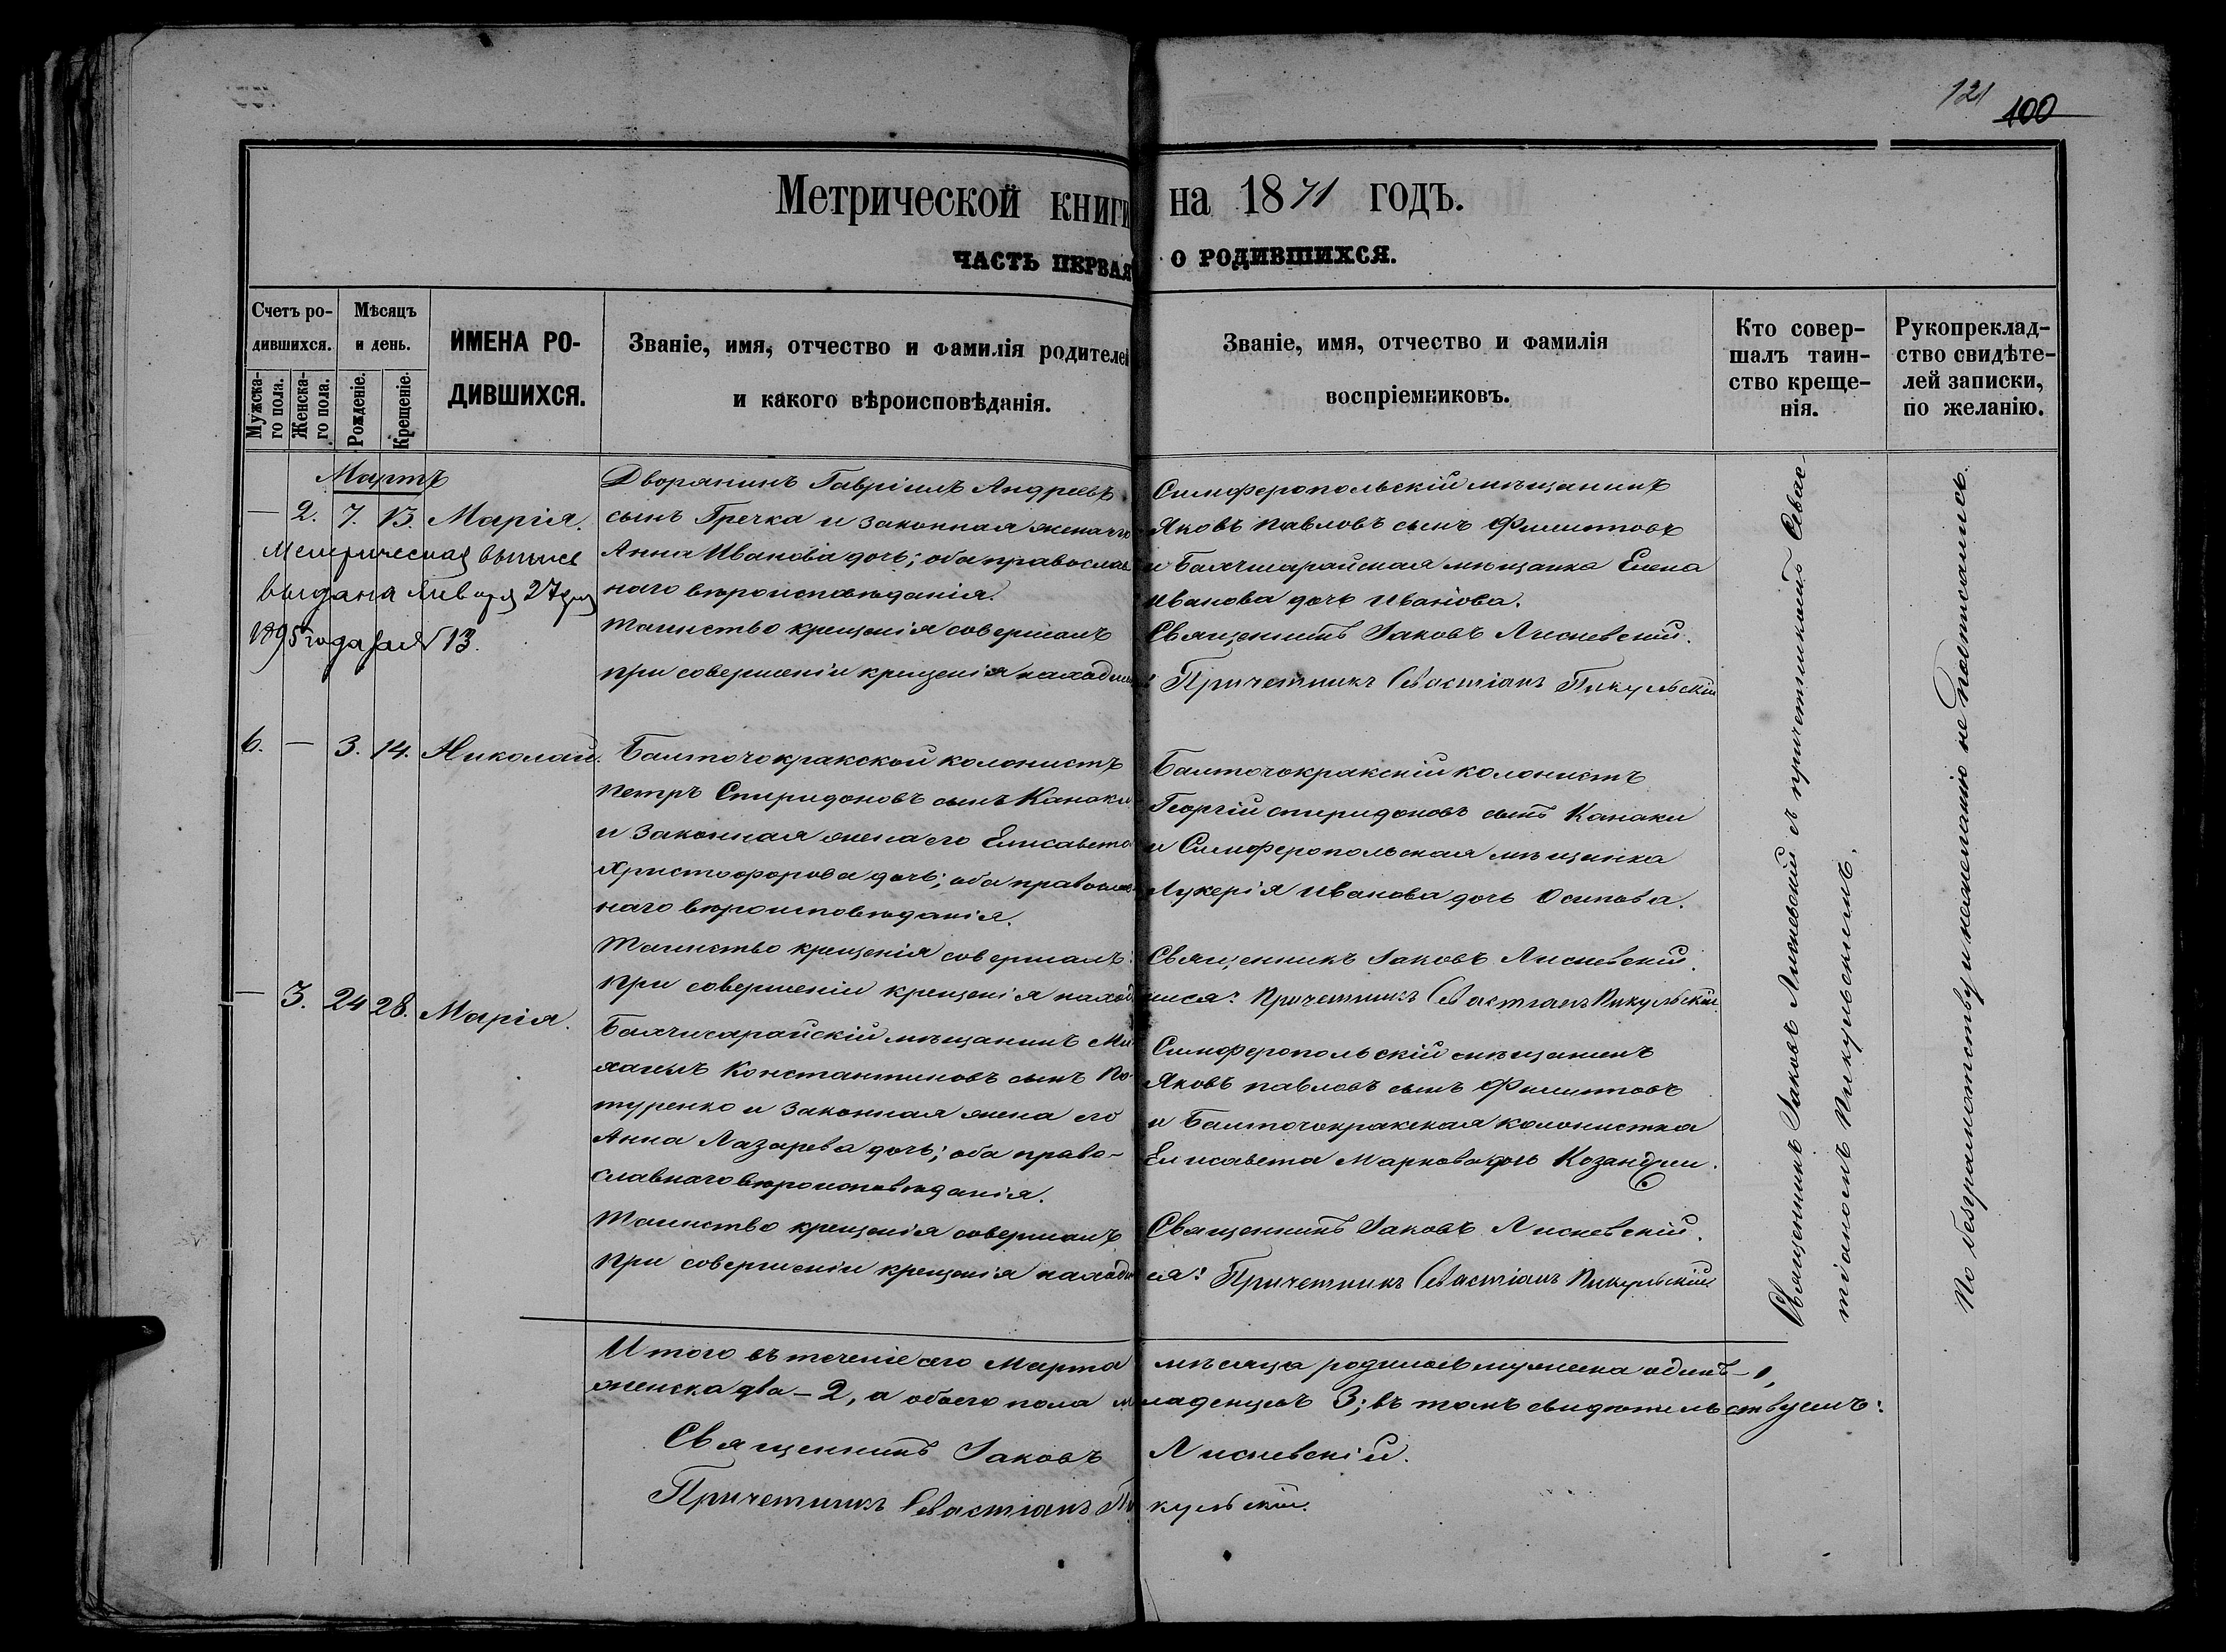 121
100
Метрической книги на 1871 годъ.
ЧАСТЬ ПЕРВАЯ О РОДИВШИХСЯ.
Счетъ ро-
дившихся.
Мужска-
го пола.
Женска-
го пола.
Мѣсяцъ
и день.
Рожденіе.
Крещеніе.
ИМЕНА РО-
ДИВШИХСЯ.
Званіе, имя, отчество и фамилія родителей
и какого вѣроисповѣданія.
Званіе, имя, отчество и фамилія
воспріемниковъ.
Кто совер-
шалъ таин-
ство креще-
нія.
Рукоприклад-
ство свидѣте-
лей записки,
по желанію.
Мартъ
— 2. 7. 13. Марія.
Метрическая выпись
выдана Января 27 дня
1895 года за № 13.
Дворянинъ Гавріилъ Андреевъ
сынъ Гречка и законная жена его
Анна Иванова дочь; оба православ
наго вѣроисповѣданія.
Таинство крещенія совершалъ
при совершеніи крещенія находился
Симферопольскій мѣщанинъ
Яковъ Павловъ сынъ Филиповъ
и Бахчисарайская мѣщанка Елена
Иванова дочь Иванова.
Священникъ Іаковъ Лисневскій.
Причетникъ Севастіанъ Пикульскій
6. — 3. 14. Николай.
Балточокракской колонистъ
Петръ Спиридоновъ сынъ Канаки
и законная жена его Елисавета
Христофорова дочь; оба православ
наго вѣроисповѣданія.
Таинство крещенія совершалъ:
при совершеніи крещенія наход
Балточокракскій колонистъ
Георгій Спиридоновъ сынъ Канаки
и Симферопольская мѣщанка
Лукерія Иванова дочь Осипова.
Священникъ Іаковъ Лисневскій.
ился: Причетникъ Севастіанъ Пикульскій.
— 3. 24 28. Марія.
Бахчисарайскій мѣщанинъ Ми
хаилъ Константиновъ сынъ По-
туренко и законная жена его
Анна Лазарева дочь; оба право-
славнаго вѣроисповѣданія.
Таинство крещенія совершалъ
при совершеніи крещенія находил
Симферопольскій мѣщанинъ
Яковъ Павловъ сынъ Филиповъ
и Балточокракская колонистка
Елисавета Маркова дочь Козанджи.
Священникъ Іаковъ Лисневскій.
ся: Причетникъ Севастіанъ Пикульскій
Священникъ Іаковъ Лисневскій съ причетникомъ Севас-
тіаномъ Пикульскимъ.
По безграмотству и нежеланію не подписались.
Итого въ теченіе сего Марта мѣсяца родилось мужеска одинъ — 1,
женска два — 2, а обоего пола младенцевъ 3; въ томъ свидѣтельствуемъ:
Священникъ Іаковъ Лисневскій.
Причетникъ Севастіанъ Пикульскій.